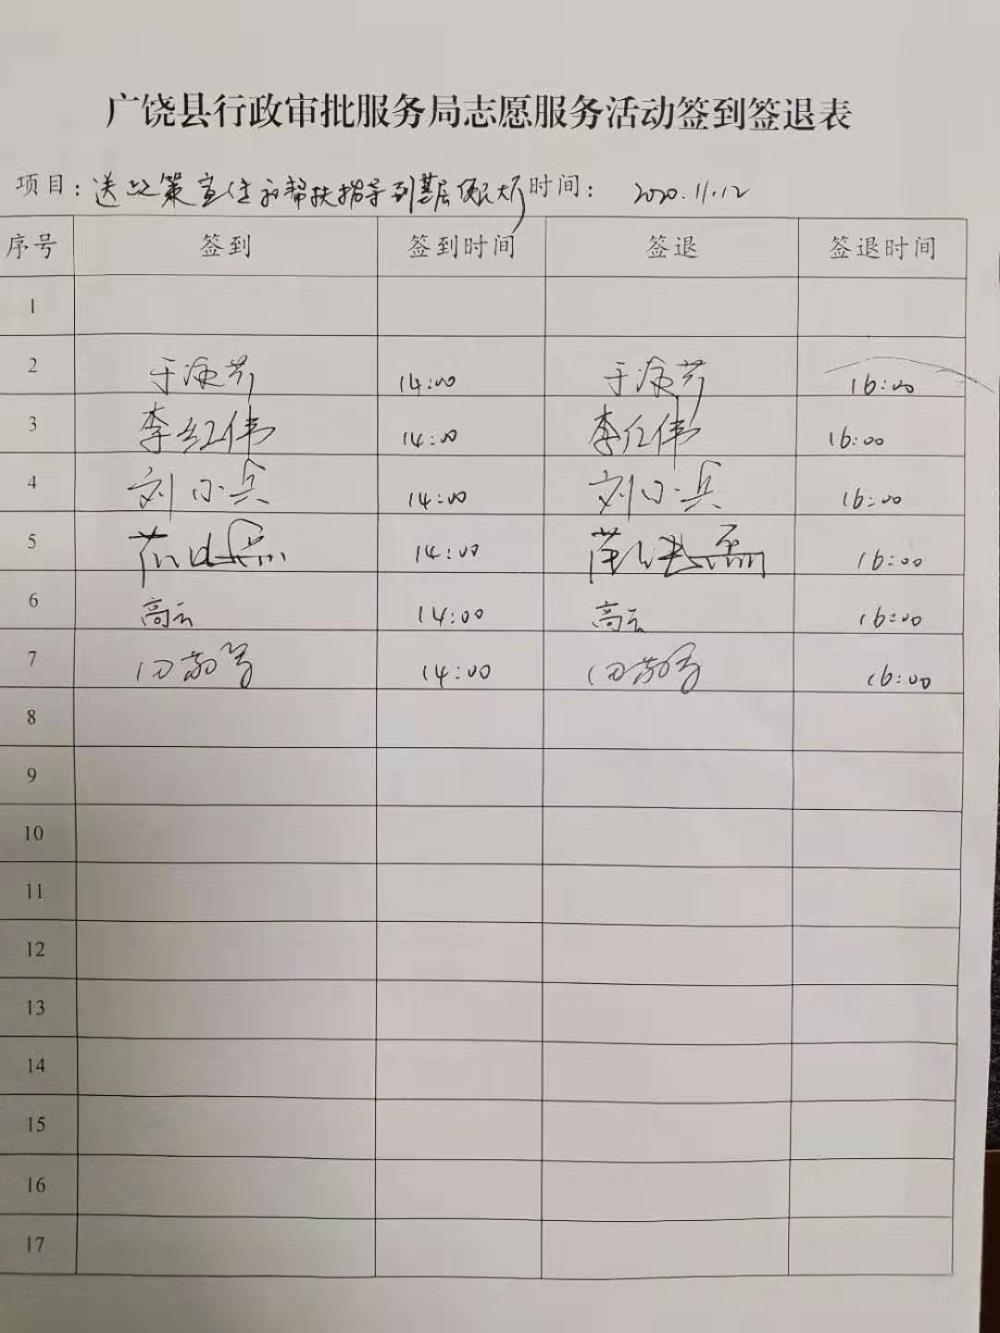 广饶县行政审批服务局志愿服务活动签到签退表
项目：送政策宣传和帮扶指导到基层便民大厅 时间： 2020.11.12
序号 签到 签到时间 签退 签退时间
1
2 14:00 16:00
3 李红伟 14:00 李红伟 16:00
4 刘小兵 14:00 刘小兵 16:00
5 14:00 16:00
6 高云 14:00 高云 16:00
7 14:00 16:00
8
9
10
11
12
13
14
15
16
17